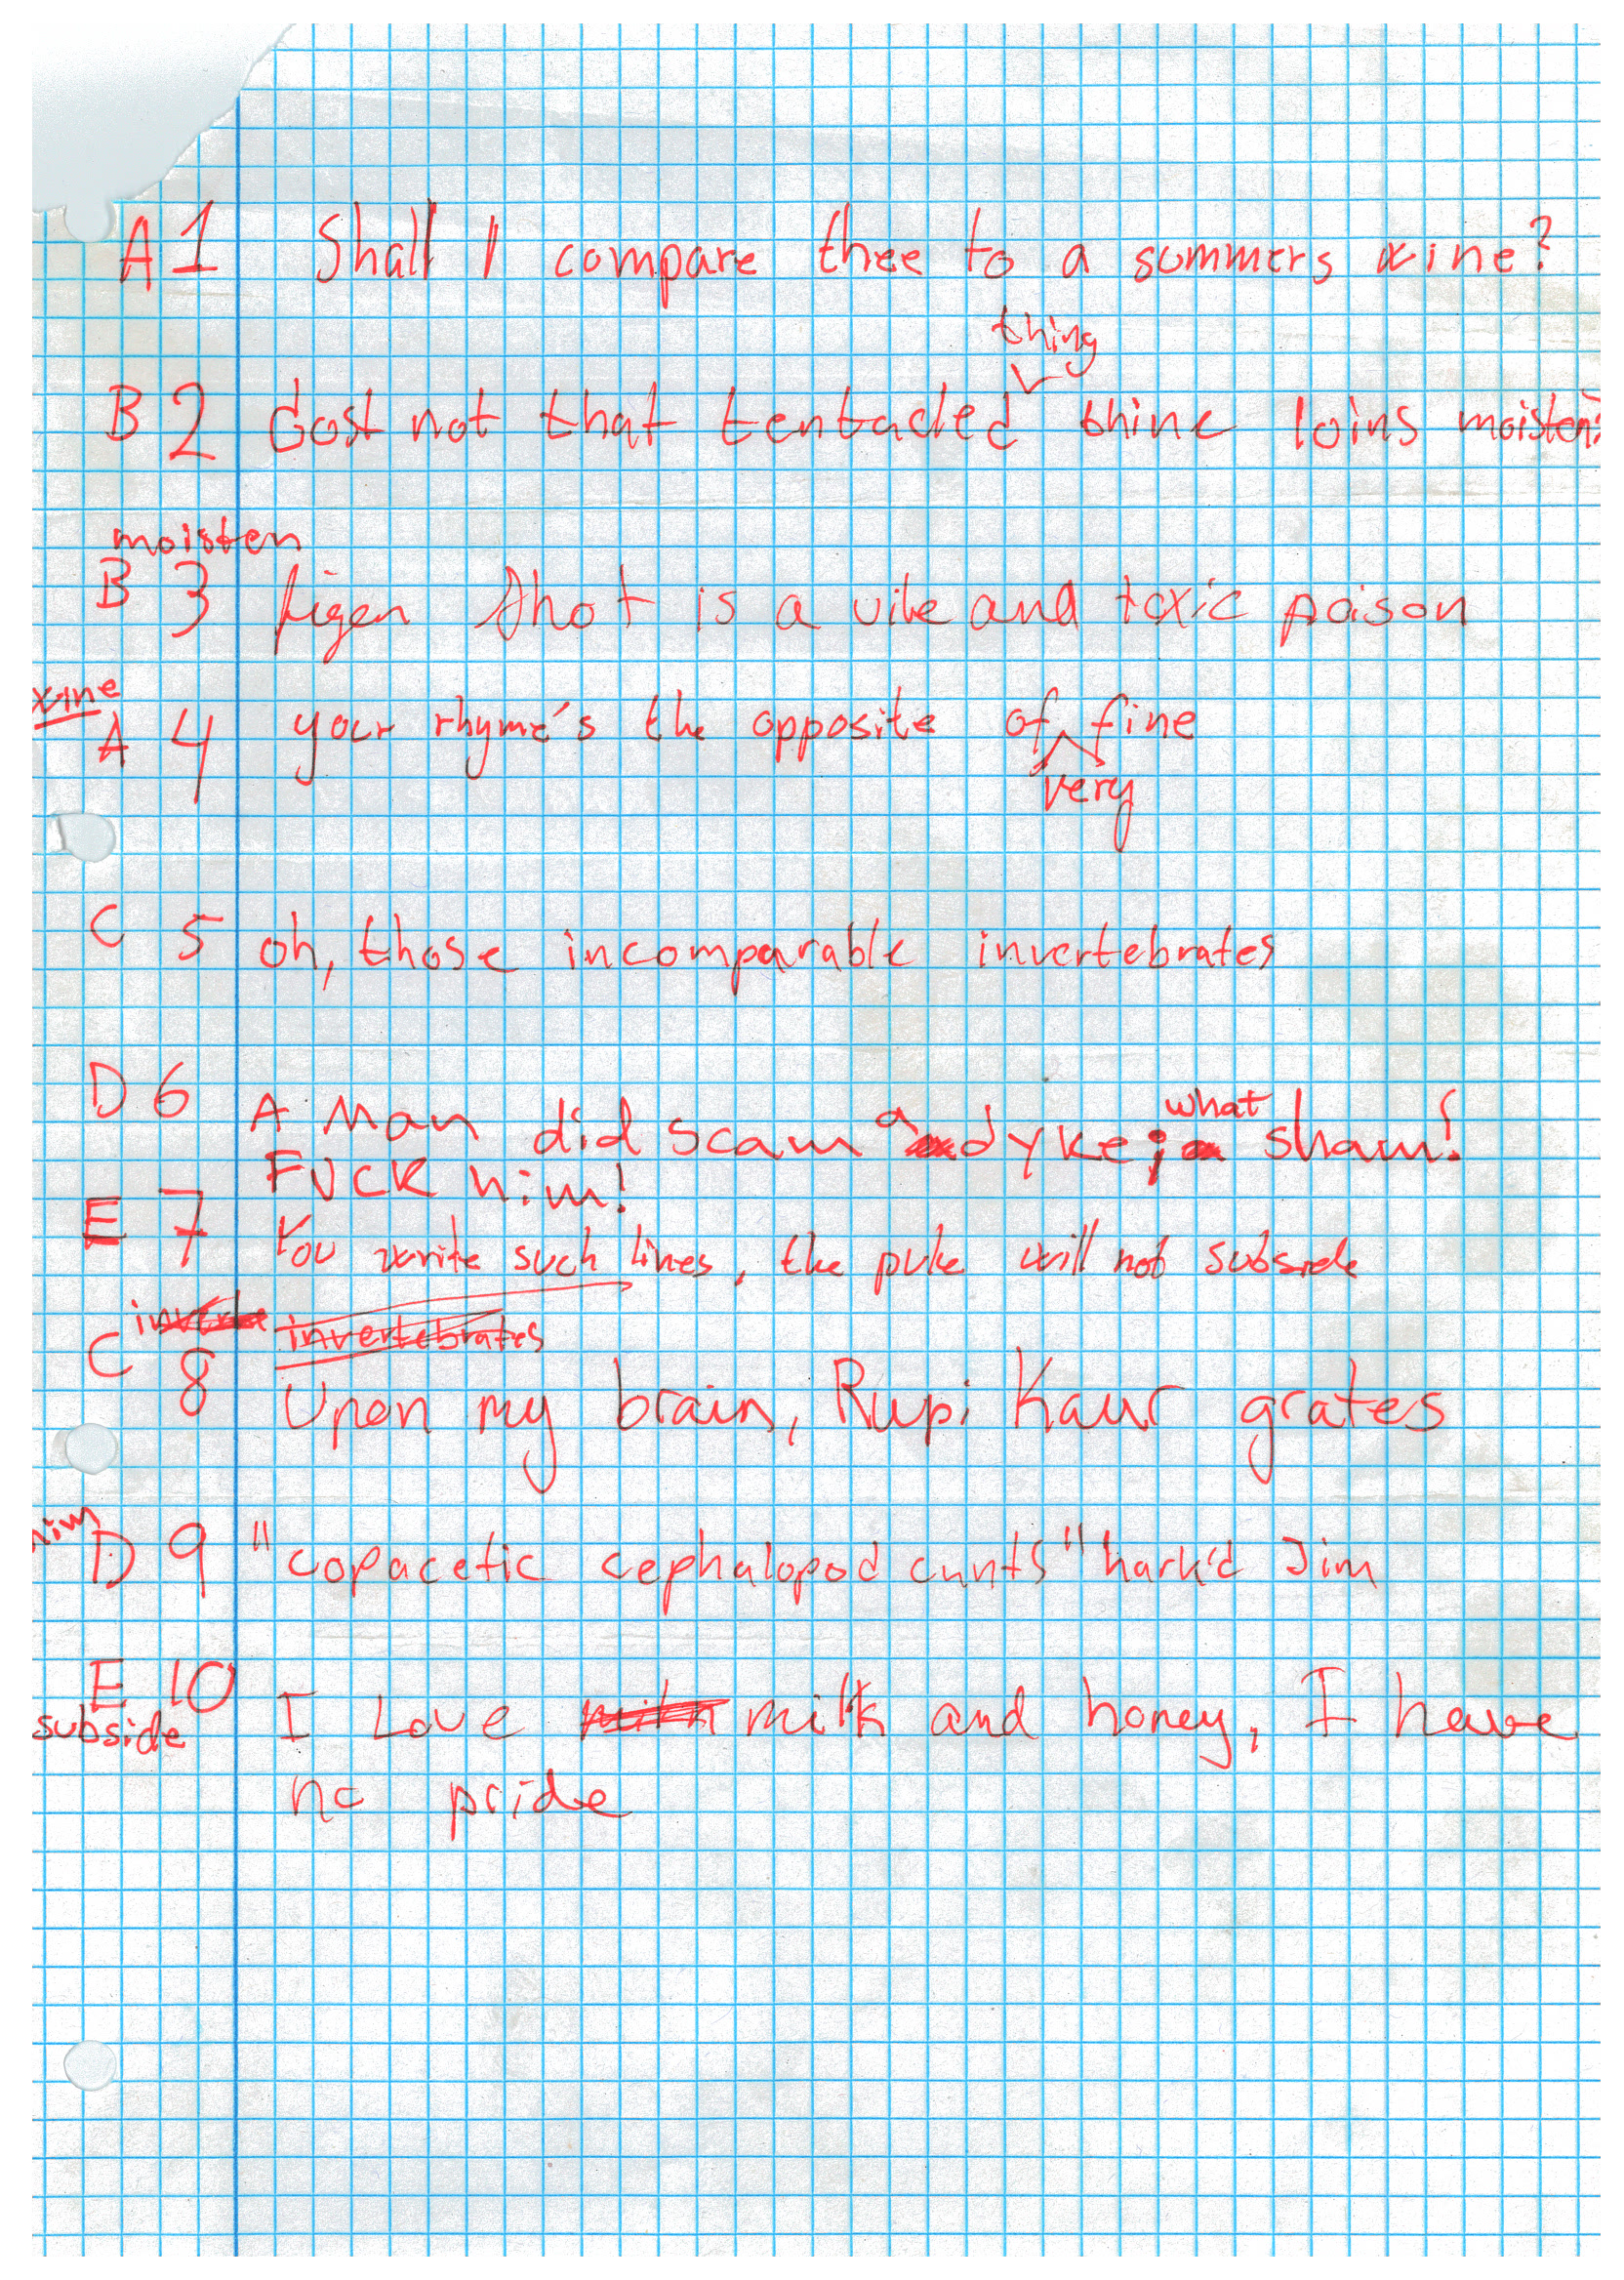 A 1 Shall I compare thee to a summers wine?
thing
B 2 Dost not that tentacled thine loins moisten?
moisten
B 3 shot is a vile and toxic poison
wine
A 4 your rhyme's the opposite of fine
very
C 5 oh, those incomparable invertebrates
D 6 A Man did scam a dyke; what sham!
FUCK him!
E 7 You write such lines, the puke will not subside
inverte invertebrates
C 8 Upon my brain, Rupi Kaur grates
him
D 9 "copacetic cephalopod cunts" hark'd Jim
E 10 I Love milk and honey, I have
subside
no pride